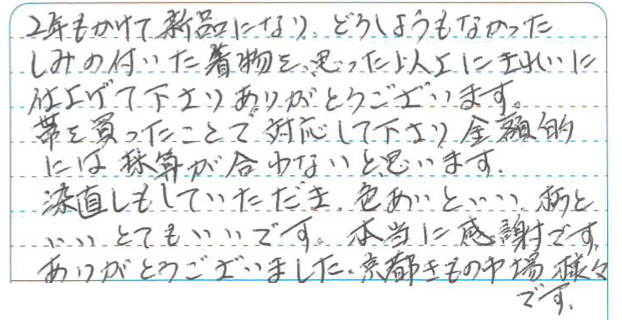 2年もかけて新品になり、どうしようもなかった
しみの付いた着物を、思った以上にきれいに
仕上げて下さりありがとうございます。
帯を買ったことで対応して下さり金額的
には採算が合わないと思います。
染直しもしていただき、色あいといい、柄と
いい とてもいいです。本当に感謝です。
ありがとうございました。京都きもの市場 様々
です。